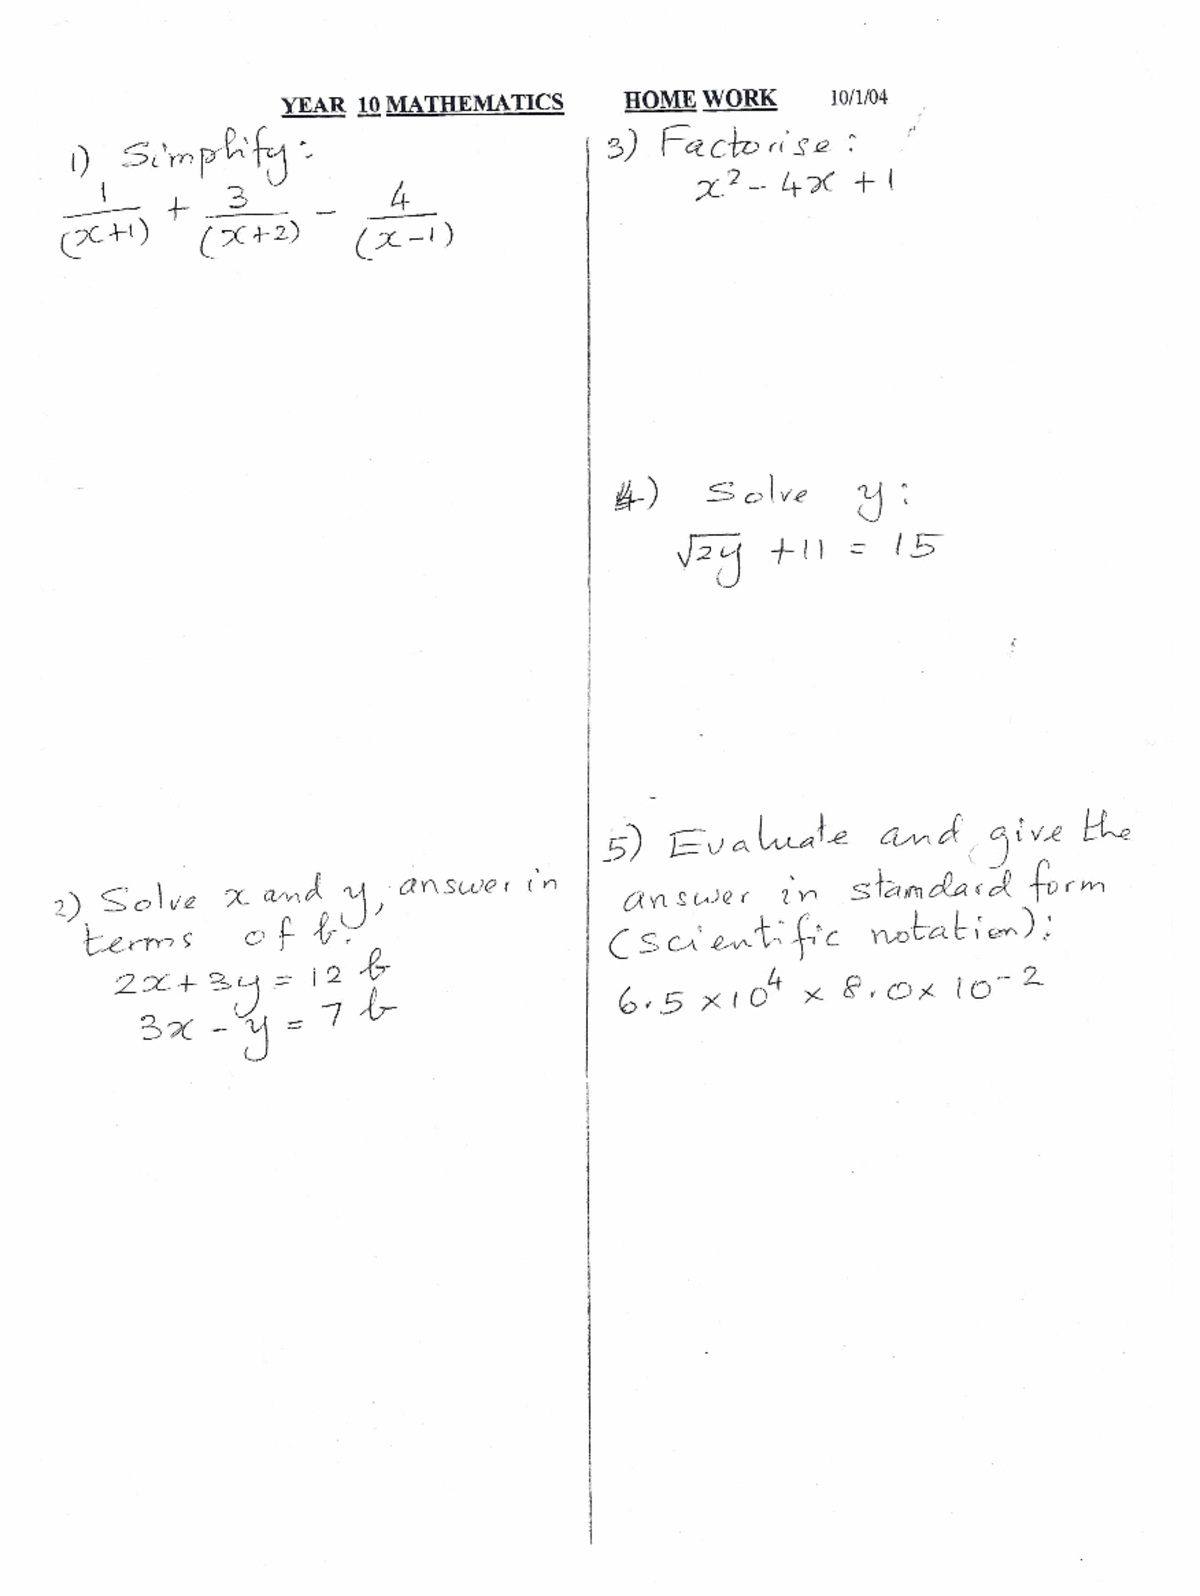 YEAR 10 MATHEMATICS HOME WORK 10/1/04
1) Simplify:
1/(x+1) + 3/(x+2) - 4/(x-1)
2) Solve x and y, answer in
terms of b.
2x+3y = 12 b
3x - y = 7 b
3) Factorise:
x² - 4x + 1
4) Solve y:
√2y + 11 = 15
5) Evaluate and give the
answer in standard form
(scientific notation):
6.5 x 10⁴ x 8.0 x 10⁻²